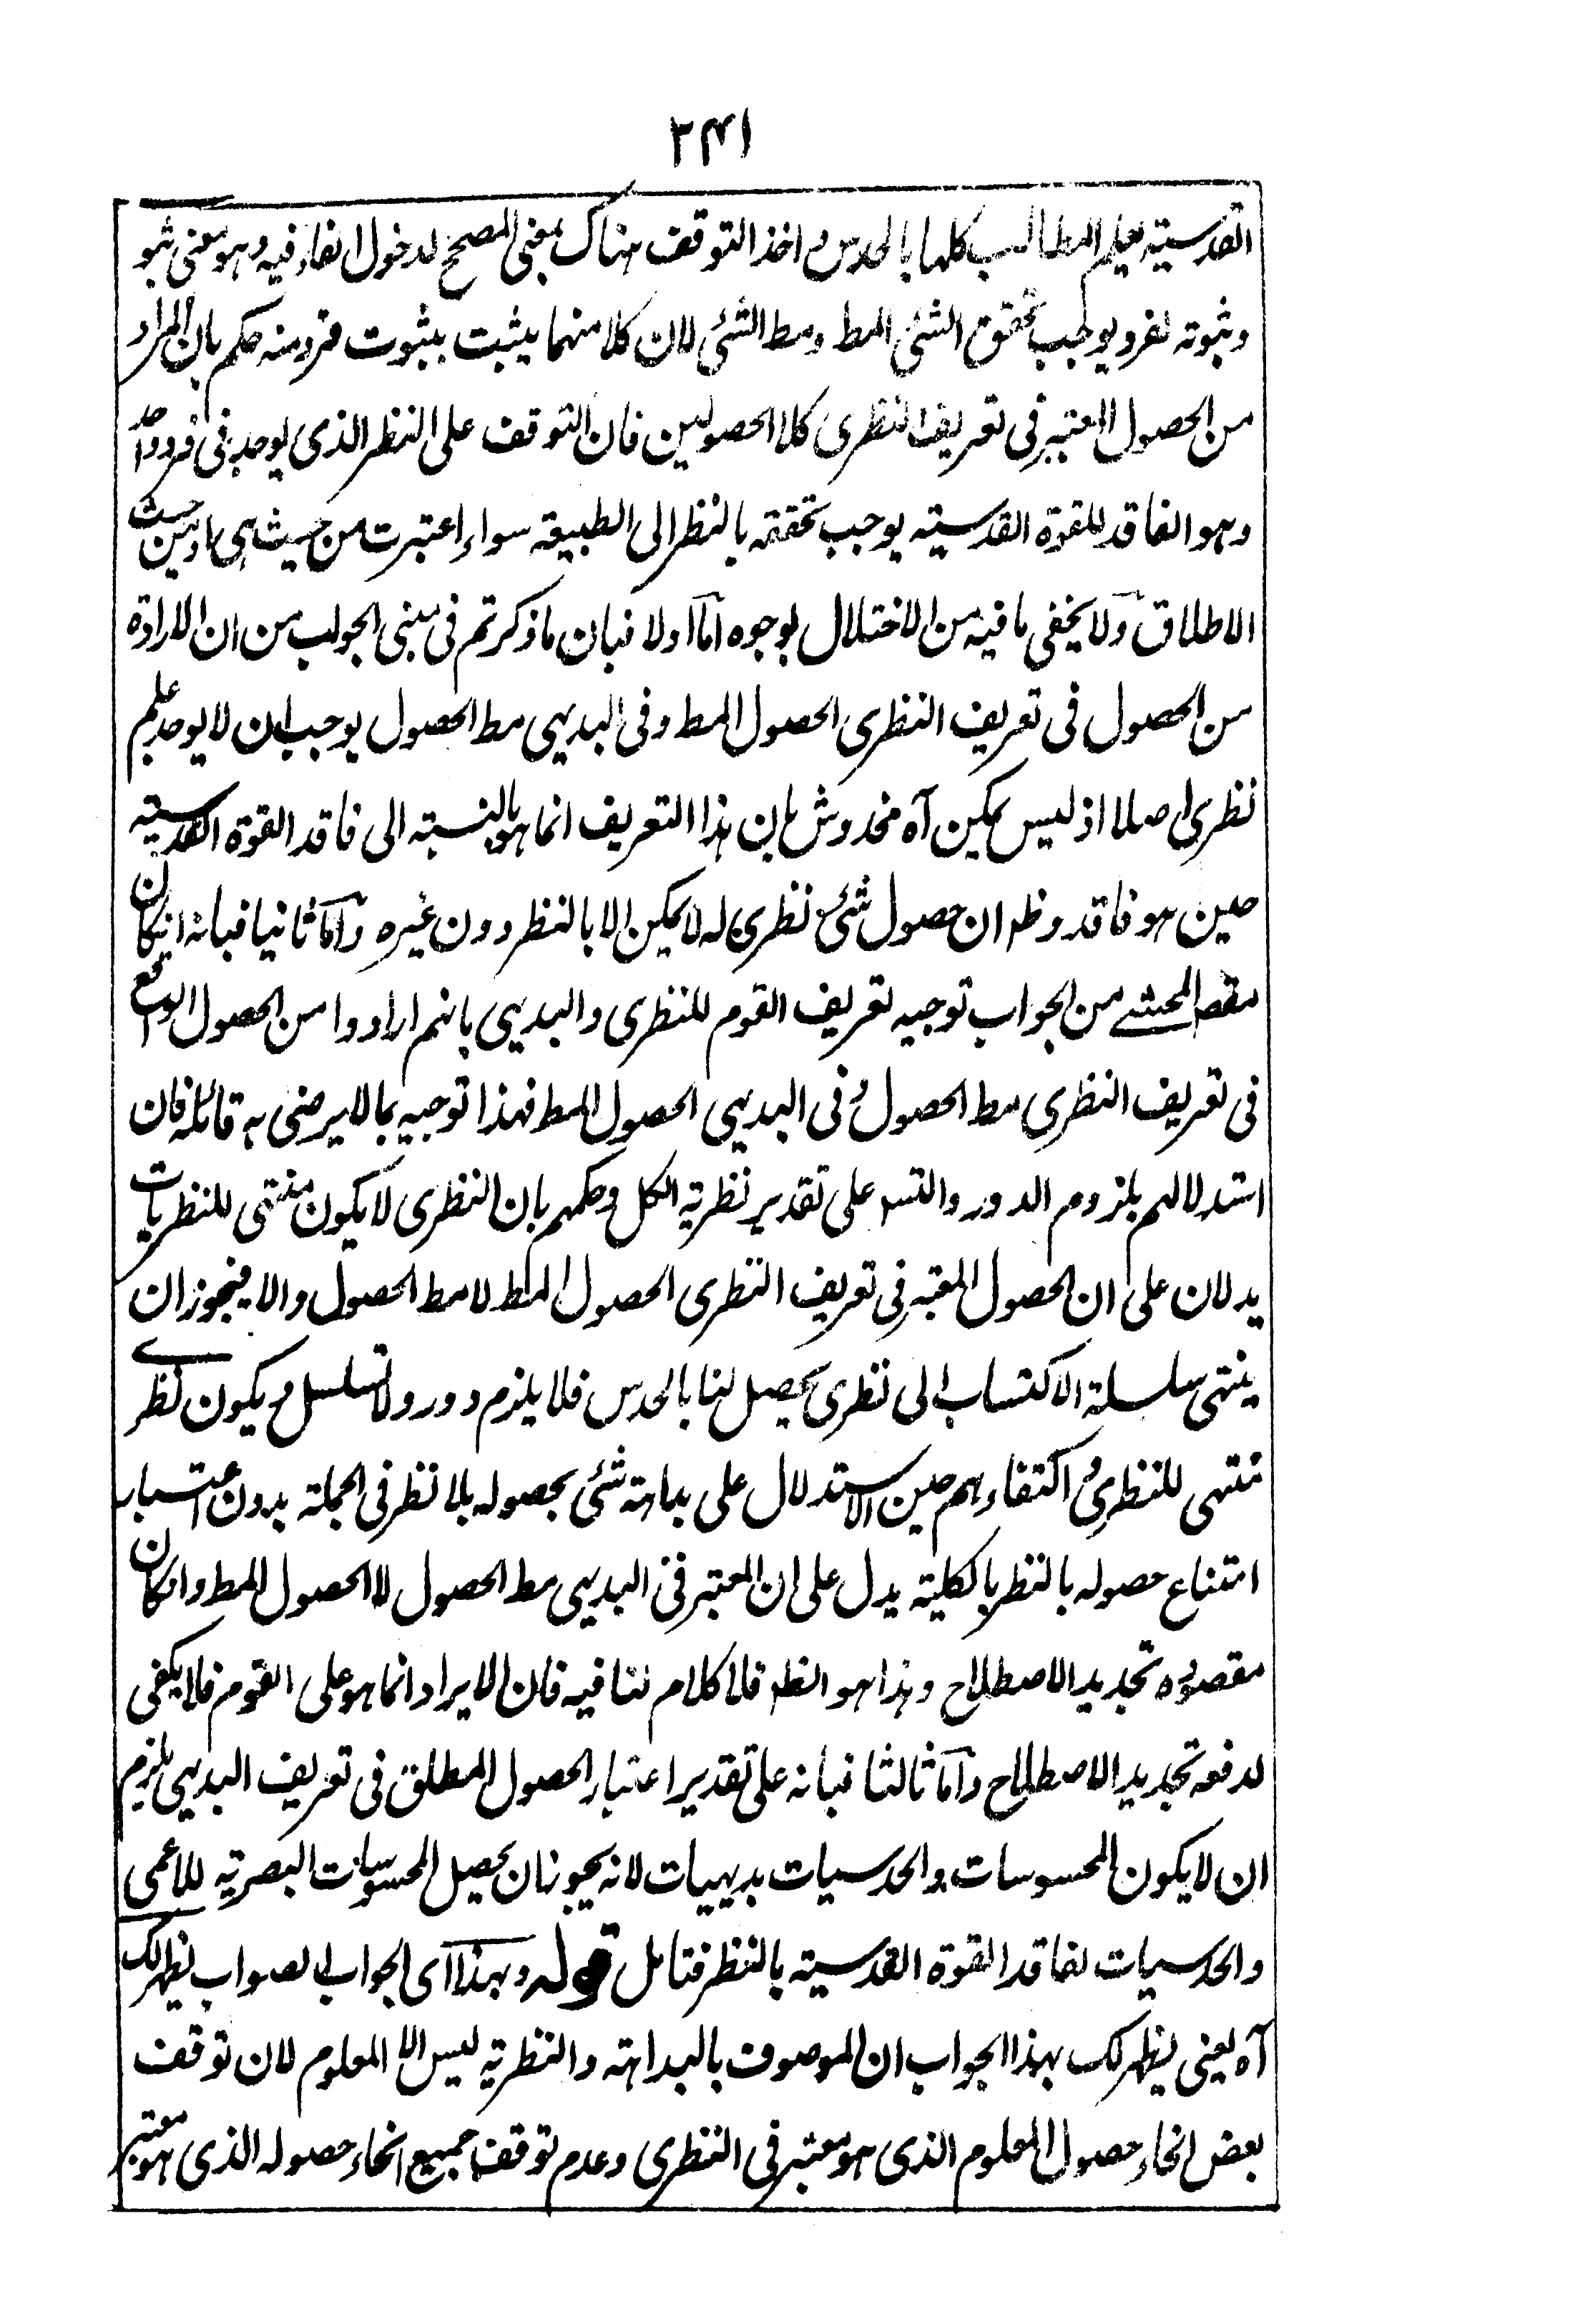 ٢٤١
القدسية يعلم المطالب كلها بالحدس واخذ التوقف هناك بمعنى المصحح لدخول الفاء فيه وهو معنى ثبو
وثبوته لفرد يوجب تحقق الشئ المط ومط الشئ لان كلا منهما يثبت بثبوت فرد منه حكم بان المراد
من الحصول المعتبر فى تعريف النظرى كلا الحصولين فان التوقف على النظر الذى يوجد فى فرد واحد
وهو الفاقد للقوة القدسية يوجب تحققه بالنظر الى الطبيعة سواء اعتبرت من حيث هى او من حيث
الاطلاق ولا يخفى ما فيه من الاختلال بوجوه اما اولا فبان ما ذكرتم فى مبنى الجواب من ان الارادة
من الحصول فى تعريف النظرى الحصول المط وفى البديهى مط الحصول يوجب ان لا يوجد علم
نظرى اصلا اذ ليس يمكن آه مخدوش بان هذا التعريف انما هو بالنسبة الى فاقد القوة القدسية
حين هو فاقد وظ ان حصول شئ نظرى له لا يمكن الا بالنظر دون غيره واما ثانيا فبانه انكان
مقصد المحشے من الجواب توجيه تعريف القوم للنظرى والبديهى بانهم ارادوا من الحصول الواقع
فى تعريف النظرى مط الحصول وفى البديهى الحصول المط فهذا توجيه بما لا يرضى به قائله فان
استدلالهم بلزوم الدور والتس على تقدير نظرية الكل وحكمهم بان النظرى لا يكون منتهى للنظريات
يدلان على ان الحصول المعتبر فى تعريف النظرى الحصول المط لا مط الحصول والا فيجوز ان
ينتهى سلسلة الاكتساب الى نظرى يحصل لنا بالحدس فلا يلزم دور ولا تسلسل و يكون نظرے
منتهى للنظرى و اكتفاءهم حين الاستدلال على بداهة شئ بحصوله بلا نظر فى الجملة بدون اعتبار
امتناع حصوله بالنظر بالكلية يدل على ان المعتبر فى البديهى مط الحصول لا الحصول المط وانكان
مقصوده تجديد الاصطلاح وهذا هو الظ فلا كلام لنا فيه فان الايراد انما هو على القوم فلا يكفى
لدفعه تجديد الاصطلاح واما ثالثا فبانه على تقدير اعتبار الحصول المطلق فى تعريف البديهى يلزم
ان لا يكون المحسوسات والحدسيات بديهيات لانه يجوز ان يحصل المحسوسات البصرية للاعمى
والحدسيات لفاقد القوة القدسية بالنظر فتامل قوله وبهذا اى الجواب الصواب يظهر لك
آه يعنى يظهر لك بهذا الجواب ان الموصوف بالبداهة والنظرية ليس الا المعلوم لان توقف
بعض انحاء حصول المعلوم الذى هو معتبر فى النظرى وعدم توقف جميع انحاء حصوله الذى هو معتبر